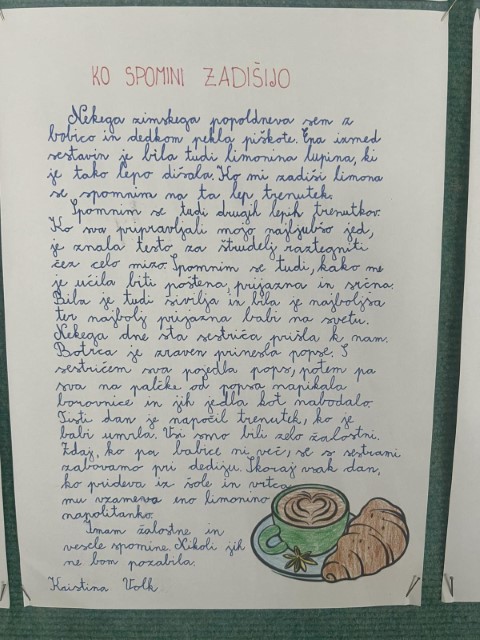 KO SPOMINI ZADIŠIJO
Nekega zimskega popoldneva sem z
babico in dedkom pekla piškote. Ena izmed
sestavin je bila tudi limonina lupina, ki
je tako lepo dišala. Ko mi zadiši limona
se spomnim na ta lep trenutek.
Spomnim se tudi drugih lepih trenutkov.
Ko sva pripravljali mojo najljubšo jed,
je znala testo za štrudelj raztegniti
čez celo mizo. Spomnim se tudi, kako me
je učila biti poštena, prijazna in srčna.
Bila je tudi šivilja in bila je najboljša
ter najbolj prijazna babi na svetu.
Nekega dne sta sestrična prišla k nam.
Botrca je zraven prinesla popse. S
sestričem sva pojedla pops, potem pa
sva na palčke od popsa napikala
borovnice in jih jedla kot nabodalo.
Tisti dan je napočil trenutek, ko je
babi umrla. Vsi smo bili zelo žalostni.
Zdaj, ko pa babice ni več, se s sestrami
zabavamo pri dediju. Skoraj vsak dan,
ko prideva iz šole in vrtca
mu vzameva eno limonino
napolitanko.
Imam žalostne in
vesele spomine. Nikoli jih
ne bom pozabila.
Kristina Volk